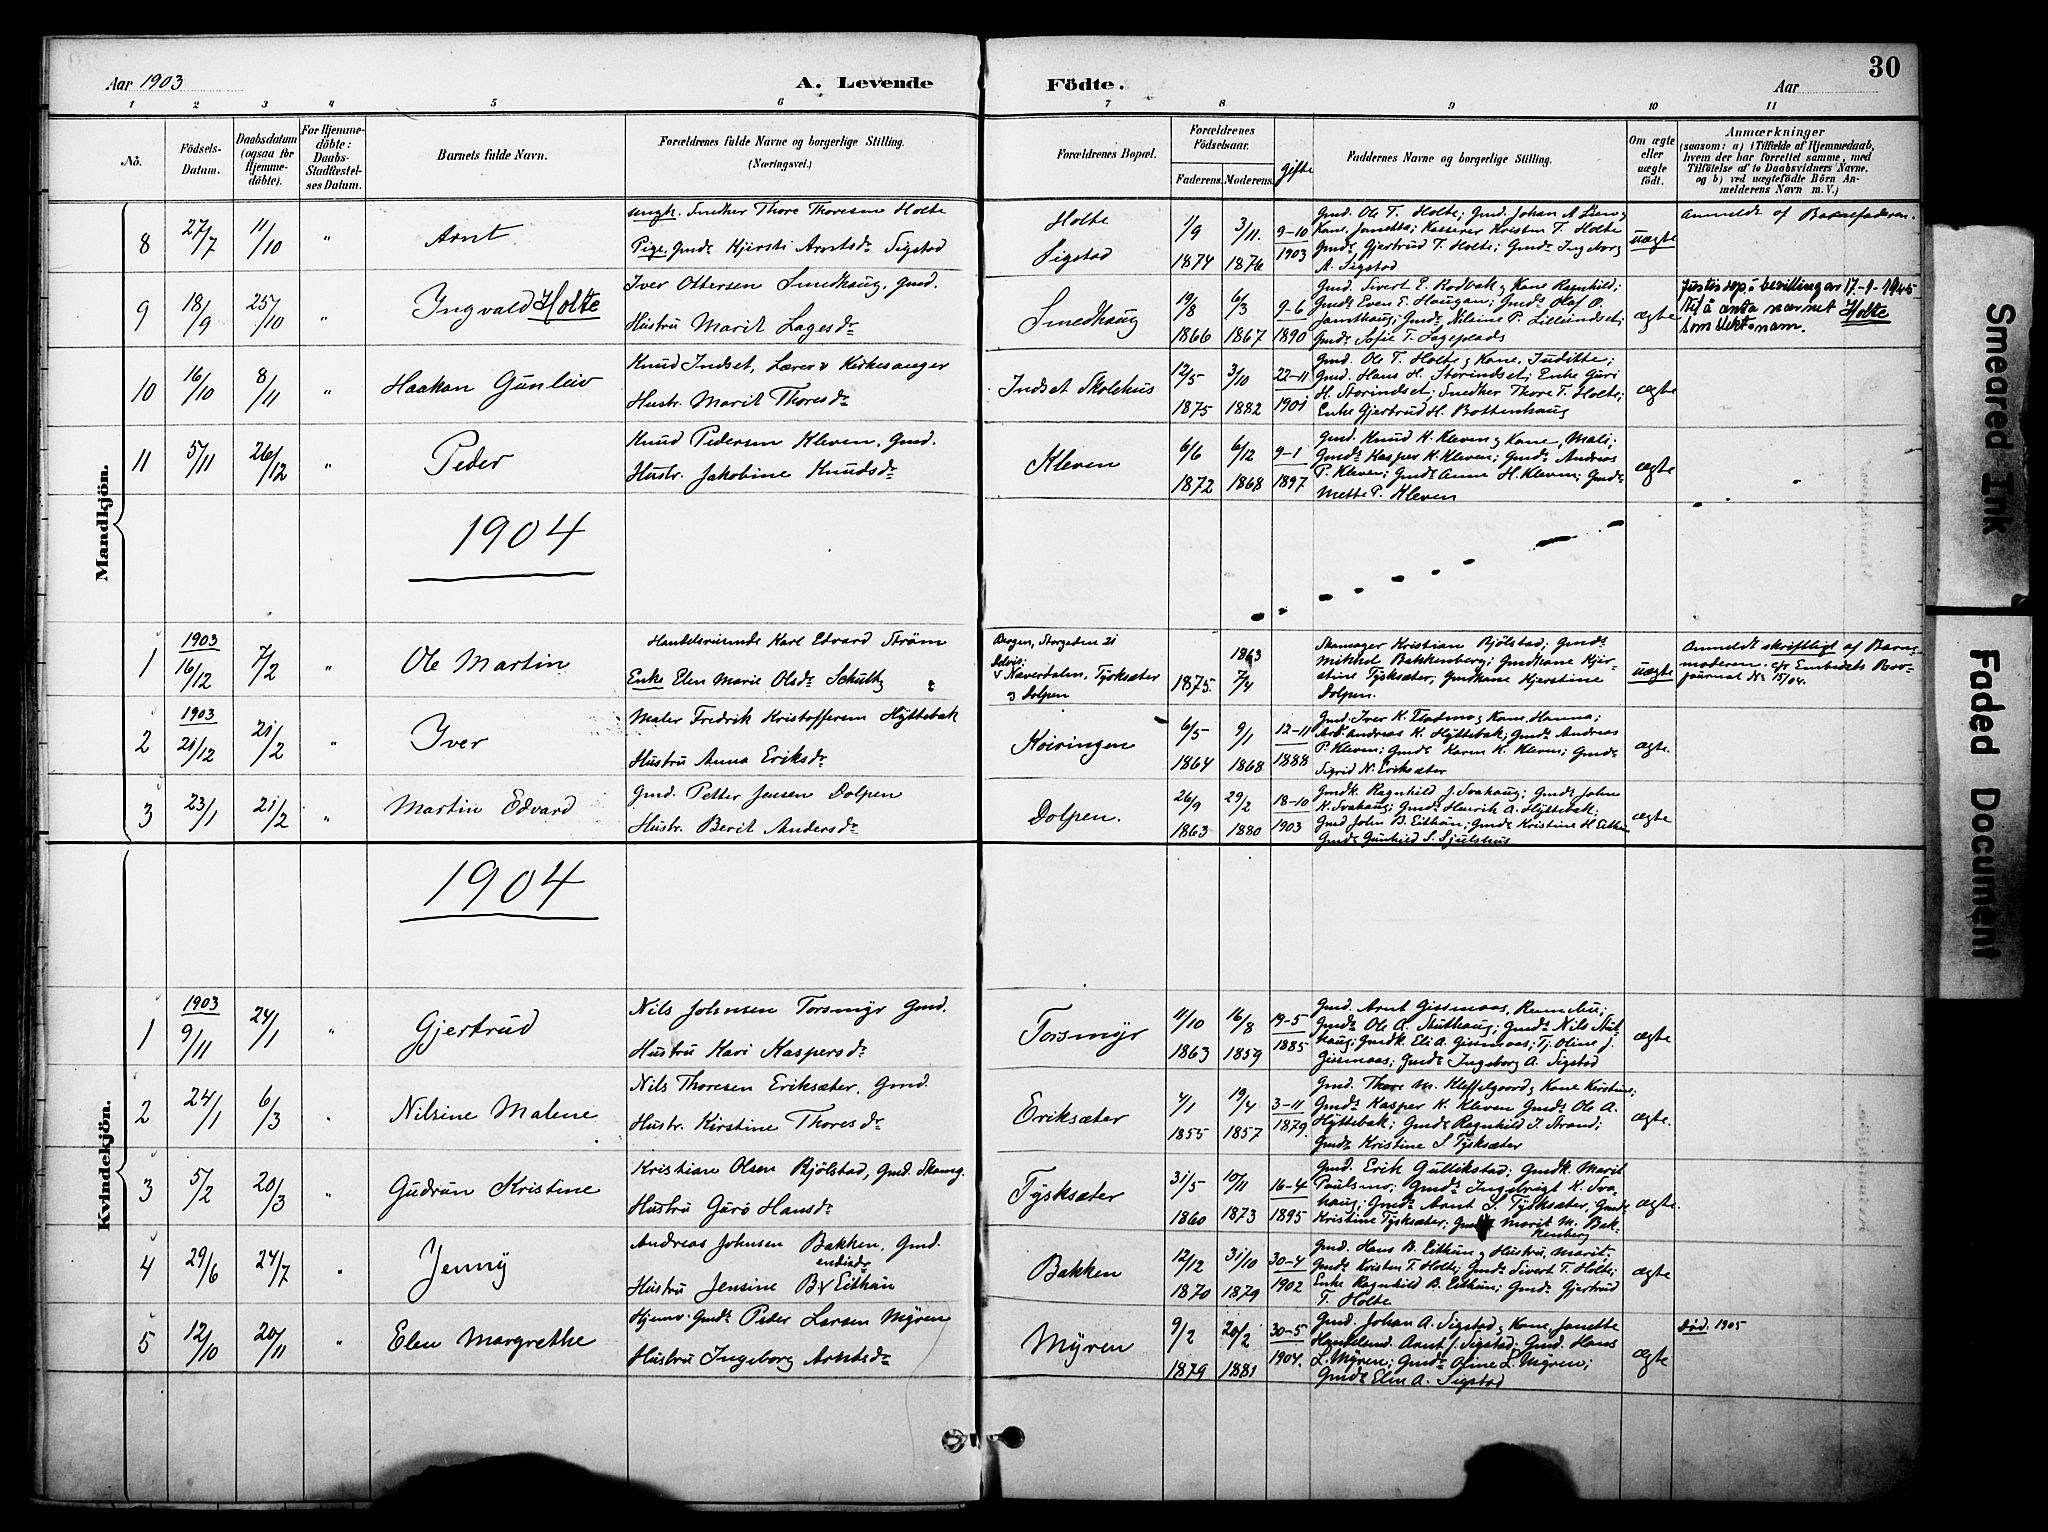 Aar 1903
A. Levende
Födte.
Aar
30
1 2 3 4 5 6 7 8 9 10 11
No.
Födsels-
Datum.
Daabsdatum
(ogsaa for
Hjemme-
döbte).
For Hjemme-
döbte:
Daabs-
Stadfæstel-
ses Datum.
Barnets fulde Navn.
Forældrenes fulde Navne og borgerlige Stilling.
(Næringsvei.)
Forældrenes Bopæl.
Forældrenes
Födselsaar.
Faderens. Moderens.
Gifte
Faddernes Navne og borgerlige Stilling.
Om ægte
eller
uægte
födt.
Anmærkninger
(saasom: a) i Tilfælde af Hjemmedaab,
hvem der har forrettet samme, med
Tilföielse af to Daabsvidners Navne,
og b) ved uægtefödte Börn An-
melderens Navn m. V.)
Mandkjön.
8 27/7 11/10 " Arnt
ungk. Snedker Thore Thoresen Holte
Pige, Gmdr Kjersti Arntsdr Sigstad
Holte
Sigstad
1/9 1874 3/11 1876 9-10 1903
Gmd. Ole T. Holte; Gmd. Johan A Lien og
Kone, Janetta; Kasserer Kristen T. Holte
Gmdr Gjertrud T. Holte; Gmdr Ingeborg
A. Sigstad
uægte
Anmeldt af Barnefaderen.
9 18/9 25/10 " Ingvald Holte
Iver Ottersen Smedhaug, gmd.
Hustru Marit Lagesdr
Smedhaug
19/8 1866 6/3 1867 9-6 1890
Gmd. Sivert E. Rodbak og Kone Ragnhild;
Gmds Even E. Haugan; Gmds Olaf O.
Jamthaug; Gmdr Nilsine P. Lilleindset;
Gmdr Sofie T. Lageplads
ægte
Justisdep.s bevilling av 17-9-1945
til å anta navnet Holte
som slektsnavn.
10 16/10 8/11 " Haakon Gunleiv
Knud Indset, Lærer & Kirkesanger
Hustr. Marit Thoresdr
Indset Skolehus
12/5 1875 3/10 1882 22-11 1901
Gmd. Ole T. Holte og Kone, Juditte;
Gmd. Hans H. Storindset; Enke Guri
H. Storindset; Snedker Thore T. Holte;
Enke Gjertrud H. Bottenhaug
ægte
11 5/11 26/12 " Peder
Knud Pedersen Kleven, Gmd.
Hustr. Jakobine Knudsdr
Kleven
6/6 1872 6/12 1868 9-1 1897
Gmd. Knud H. Kleven og Kone, Mali;
Gmds Kasper K. Kleven; Gmds Andreas
P. Kleven; Gmdr Anne H. Kleven; Gmdr
Mette P. Kleven
ægte
1904
1 1903 16/12 7/2 " Ole Martin
Handelsreisende Karl Edvard Ström
Enke Elen Marie Olsdr Schultz
Bergen, Storgeden 21
Delvis:
Næverdalen, Tysksæter
og Dolpen
1875 1863 7/4
Skomager Kristian Bjølstad; Gmds
Mikkel Bakkenberg; Gmdkone Kjer-
stine Tysksæter; Gmdkone Kjerstine
Dolpen.
uægte
Anmeldt skriftligt af Barne-
moderen. cfr Embedets Brev-
journal No 15/04.
2 1903 21/12 21/2 " Iver
Maler Fredrik Kristoffersen Hyttebak
Hustru Anna Eriksdr
Kviringen
6/5 1864 9/1 1868 12-11 1888
Gmd. Iver K. Flatmo og Kone, Hanna;
Arb. Andreas K. Hyttebak; Gmds Andreas
P. Kleven; Gmdr Karen K. Kleven; Gmdr
Sigrid N. Eriksæter
ægte.
3 23/1 21/2 " Martin Edvard
Gmd. Petter Jensen Dolpen
Hustr. Berit Andersdr
Dolpen.
26/9 1863 29/2 1880 18-10 1903
Gmdk. Ragnhild J. Svahaug; Gmds John
K. Svahaug; Gmds Henrik A. Hyttebak;
Gmd John B. Eithun; Gmdr Kristine H Eithun
Gmdr Gunhild S. Sjulshus
ægte
1904
Kvindekjön.
1 1903 9/11 24/1 " Gjertrud
Nils Johnsen Torsmyr Gmd.
Hustru Kari Kaspersdr
Torsmyr
11/10 1863 16/8 1859 19-5 1885
Gmd. Arnt Gissmaas, Rennebu;
Gmds Ole A. Stuthaug; Gmds Nils Stut-
haug; Gmdk. Eli A. Gissmaas; Tj. Oline J.
Gissmaas; Gmdr Ingeborg A. Sigstad
ægte
2 24/1 6/3 " Nilsine Malene
Nils Thoresen Eriksæter, Gmd.
Hustr. Kirstine Thoresdr
Eriksæter
4/1 1855 19/4 1857 3-11 1879.
Gmd. Thore M. Kleffelgaard og Kone Kirstine;
Gmds Kasper K. Kleven Gmds Ole A.
Hyttebak; Gmdr Ragnhild J. Strand;
Gmdr Kristine S. Tysksæter
ægte.
3 5/2 20/3 " Gudrun Kristine
Kristian Olsen Bjølstad, Gmd. Skomg.
Hustru Guro Hansdr
Tysksæter
31/5 1860 10/11 1873 16-4 1895
Gmd. Erik Gullikstad; Gmdk. Marit
Paulsmo; Gmds Ingebrigt K. Sva-
haug; Gmds Arnt S. Tysksæter, Gmdr
Kristine Tysksæter; Gmdr Marit M. Bak-
kenberg
ægte.
4 29/6 24/7 " Jenny
Andreas Johnsen Bakken, Gmd.
Hustru Jensine B. Eithun
Bakken
12/12 1870 31/10 1879 30-4 1902
Gmd. Hans B. Eithun og Hustru, Marit;
Gmds Kristen T. Holte; Gmds Sivert T. Holte;
Enke Ragnhild B. Eithun; Gmdr Gjertrud
T. Holte
ægte
5 12/10 20/11 " Elen Margrethe
Hjemv. Gmds Peter Larsen Myren
Hustru Ingeborg Arntsdr
Myren
9/2 1879 20/2 1881 30-5 1904.
Gmd. Johan A. Sigstad og Kone, Janette
Handelsmd. Arnt J. Sigstad; Gmd. Hans
L. Myren; Gmdr Oline L. Myren;
Gmdr Elen A. Sigstad
ægte
Død. 1905
Smeared Ink
Faded Document